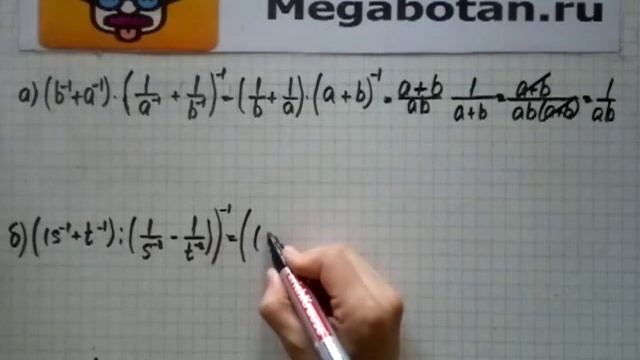 Megabotan.ru
а) (b⁻¹+a⁻¹)·(1/a⁻¹ + 1/b⁻¹)⁻¹=(1/b+1/a)·(a+b)⁻¹=(a+b)/(ab) 1/(a+b)=(a+b)/(ab(a+b))=1/(ab)
б) ((s⁻¹+t⁻¹):(1/s⁻² - 1/t⁻²))⁻¹=((